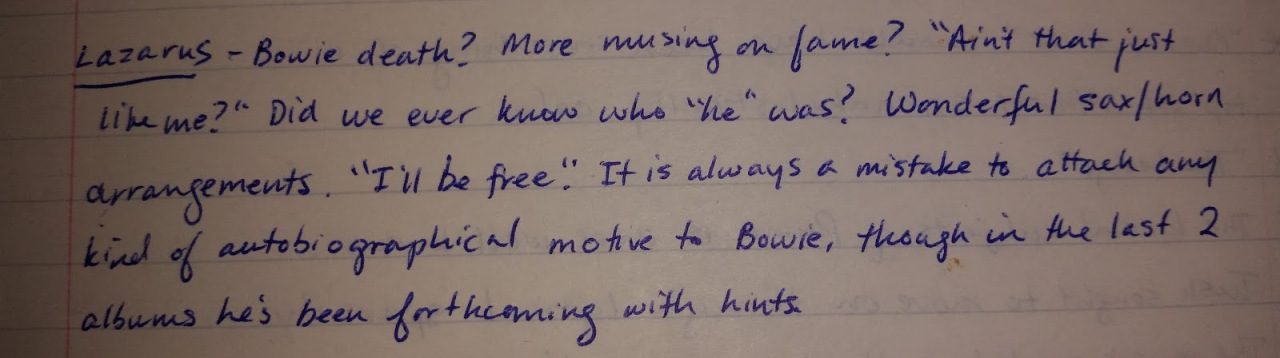 Lazarus - Bowie death? More musing on fame? "Ain't that just
like me?" Did we ever know who "he" was? Wonderful sax/horn
arrangements. "I'll be free." It is always a mistake to attach any
kind of autobiographical motive to Bowie, though in the last 2
albums he's been forthcoming with hints.